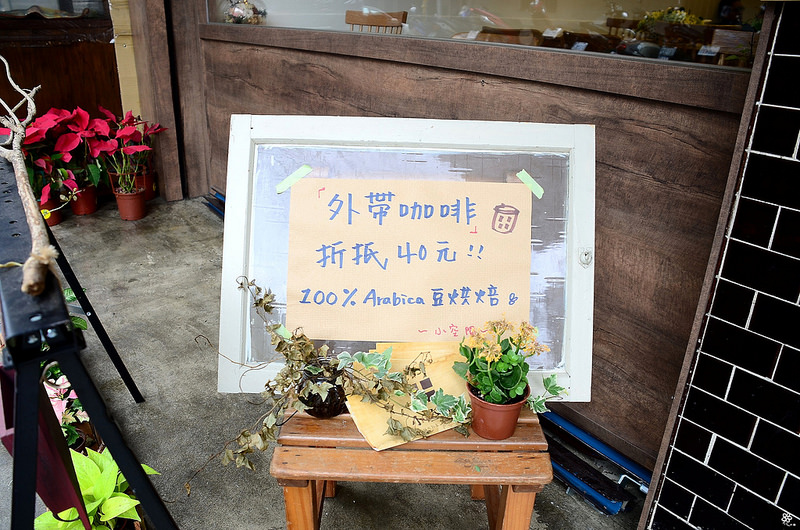 「外帶咖啡」
折抵40元!!
100% Arabica 豆烘焙
~小空間~